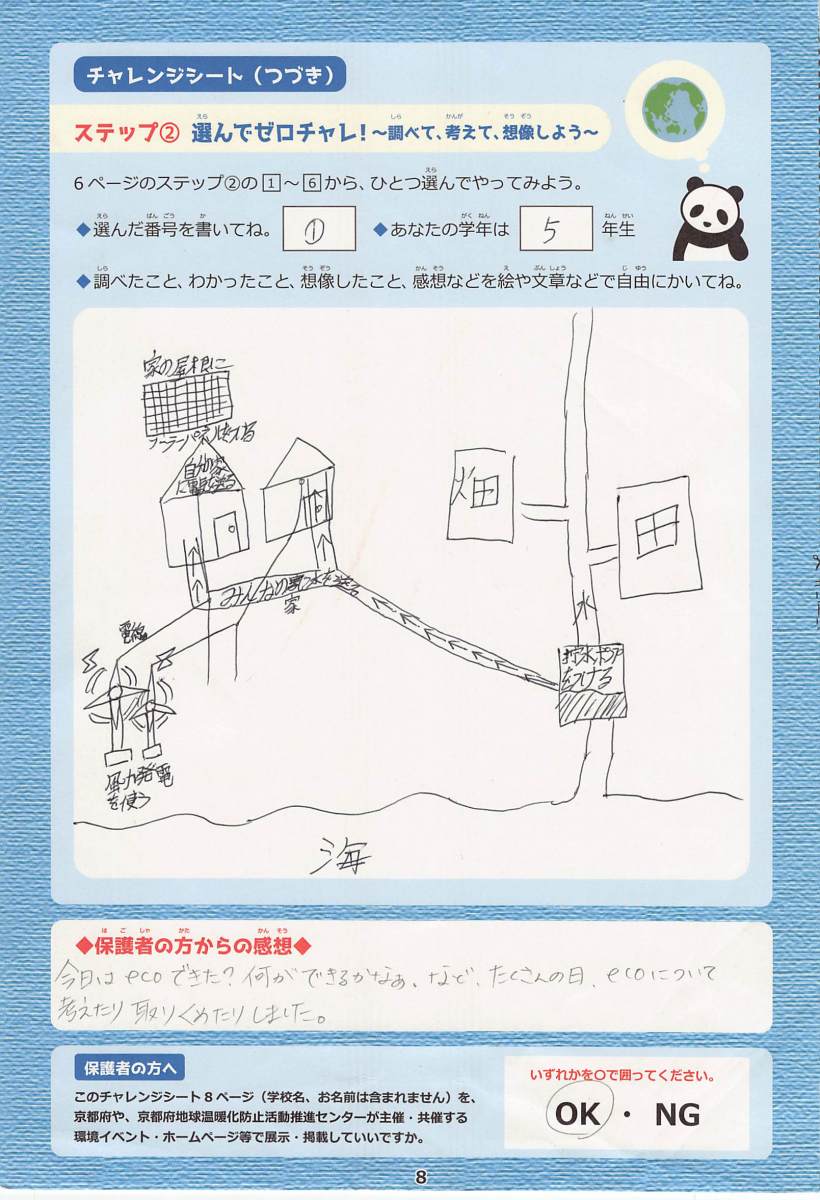 チャレンジシート（つづき）
ステップ② 選んでゼロチャレ！～調べて、考えて、想像しよう～
6ページのステップ②の1～6から、ひとつ選んでやってみよう。
◆選んだ番号を書いてね。 ① ◆あなたの学年は 5 年生
◆調べたこと、わかったこと、想像したこと、感想などを絵や文章などで自由にかいてね。
家の屋根に
ソーラーパネルをつける
自分の家
に電気を送る
畑
田
みんなの家に水を送る
家
水
電線
貯水ポンプ
をつける
風力発電
を使う
海
◆保護者の方からの感想◆
今日はecoできた？何ができるかなぁ、など、たくさんの日、ecoについて
考えたり取りくめたりしました。
保護者の方へ
このチャレンジシート8ページ（学校名、お名前は含まれません）を、
京都府や、京都府地球温暖化防止活動推進センターが主催・共催する
環境イベント・ホームページ等で展示・掲載していいですか。
いずれかを○で囲ってください。
OK ・ NG
8